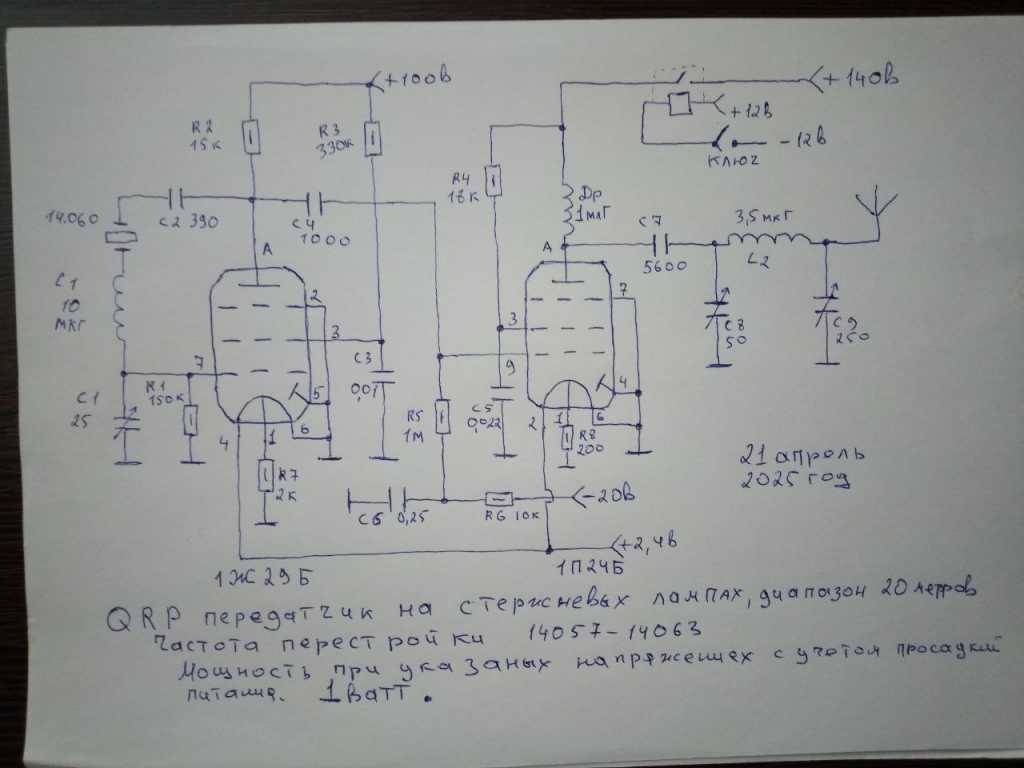 +100в
+140в
R2
15к
R3
330к
+12в
-12в
ключ
R4
18к
Др
1мгГ
14.060
C2 390
C4
1000
C7
5600
3,5мкГ
L2
А
А
10
мкг
2
3
7
7
3
9
C1
25
R1
150к
C3
0,01
5
4
1
6
R5
1М
C5
0,022
2
1
4
6
R8
200
C8
50
C9
250
R7
2к
C6
0,25
R6 10к
-20в
+2,4в
21 апроль
2025 год
1Ж29Б
1П24Б
QRP передатчик на стержневых лампах, диапазон 20 метров
Частота перестройки 14057-14063
Мощность при указаных напряжениех с учотом просадкий
питания. 1 Ватт.